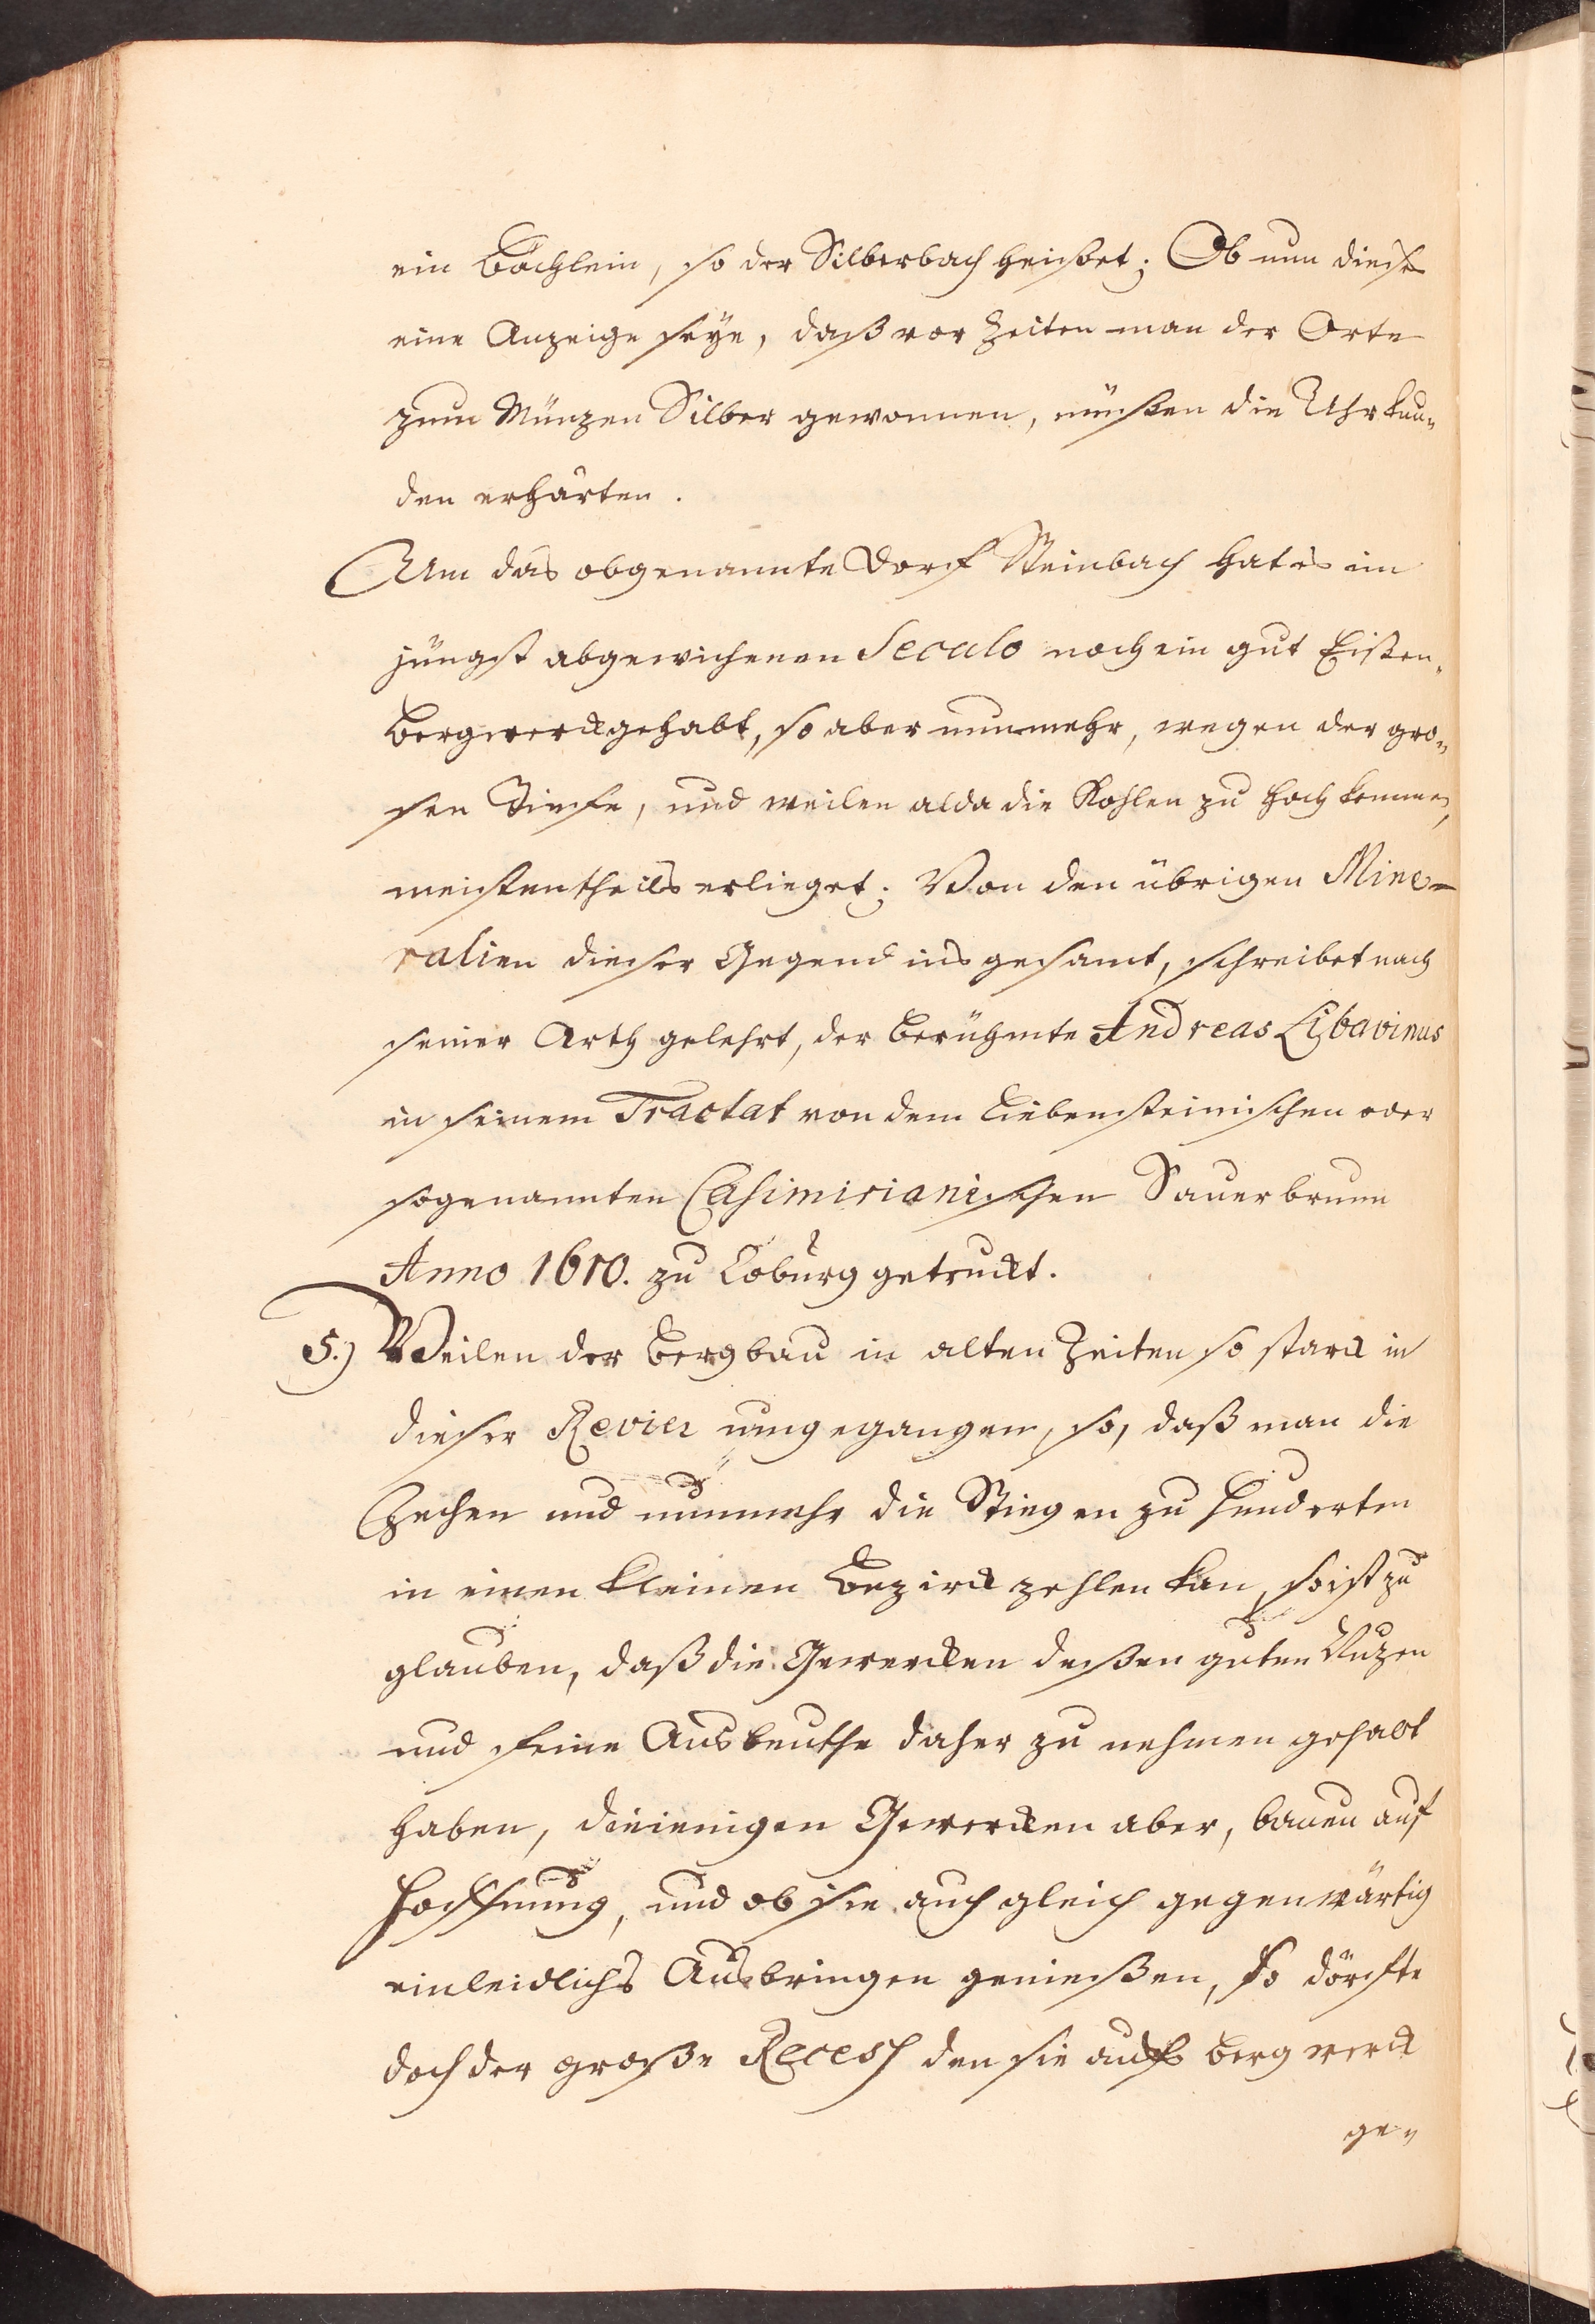 ein Bächlein, so der Silberbach heißet; Ob nun dieses
eine Anzeige seye, daß vor Zeiten man der Orte
zum Münzen Silber gewonnen, müßen die Uhrkun„
den erhärten.
Um das obgenannte Dorf Steinbach hat es im
jüngst abgewichenen Seculo noch ein gut Eißen„
Bergwerck gehabt, so aber nunmehr, wegen der gro„
sen Tiefe, und weilen alda die Kohlen zu hoch kommen,
meistentheils erlieget; Von den übrigen Mine=
ralien dieser Gegend ins gesamt, schreibet nach
seiner Arth gelehrt, der berühmte Andreas Libavinus
in seinem Tractat von dem Liebensteinischen oder
sogenannten Casimirianischen Sauerbrunn
Anno 1610. zu Coburg getruckt.
5.) Weilen der Bergbau in alten Zeiten so starck in
dieser Revier umgegangen, so, daß man die
Zechen und nunmehr die Stiegen zu hunderten
in einen kleinen Bezirck zehlen kan, so ist zu
glauben, daß die Gewercken deßen guten Nuzen
und feine Ausbeuthe daher zu nehmen gehabt
haben, dieienigen Gewercken aber, bauen auf
Hoffnung, und ob sie auch gleich gegenwärtig
ein leidlichs Ausbringen genießen, so dörfte
doch der große Recess den sie aufs Bergwerck
ge„